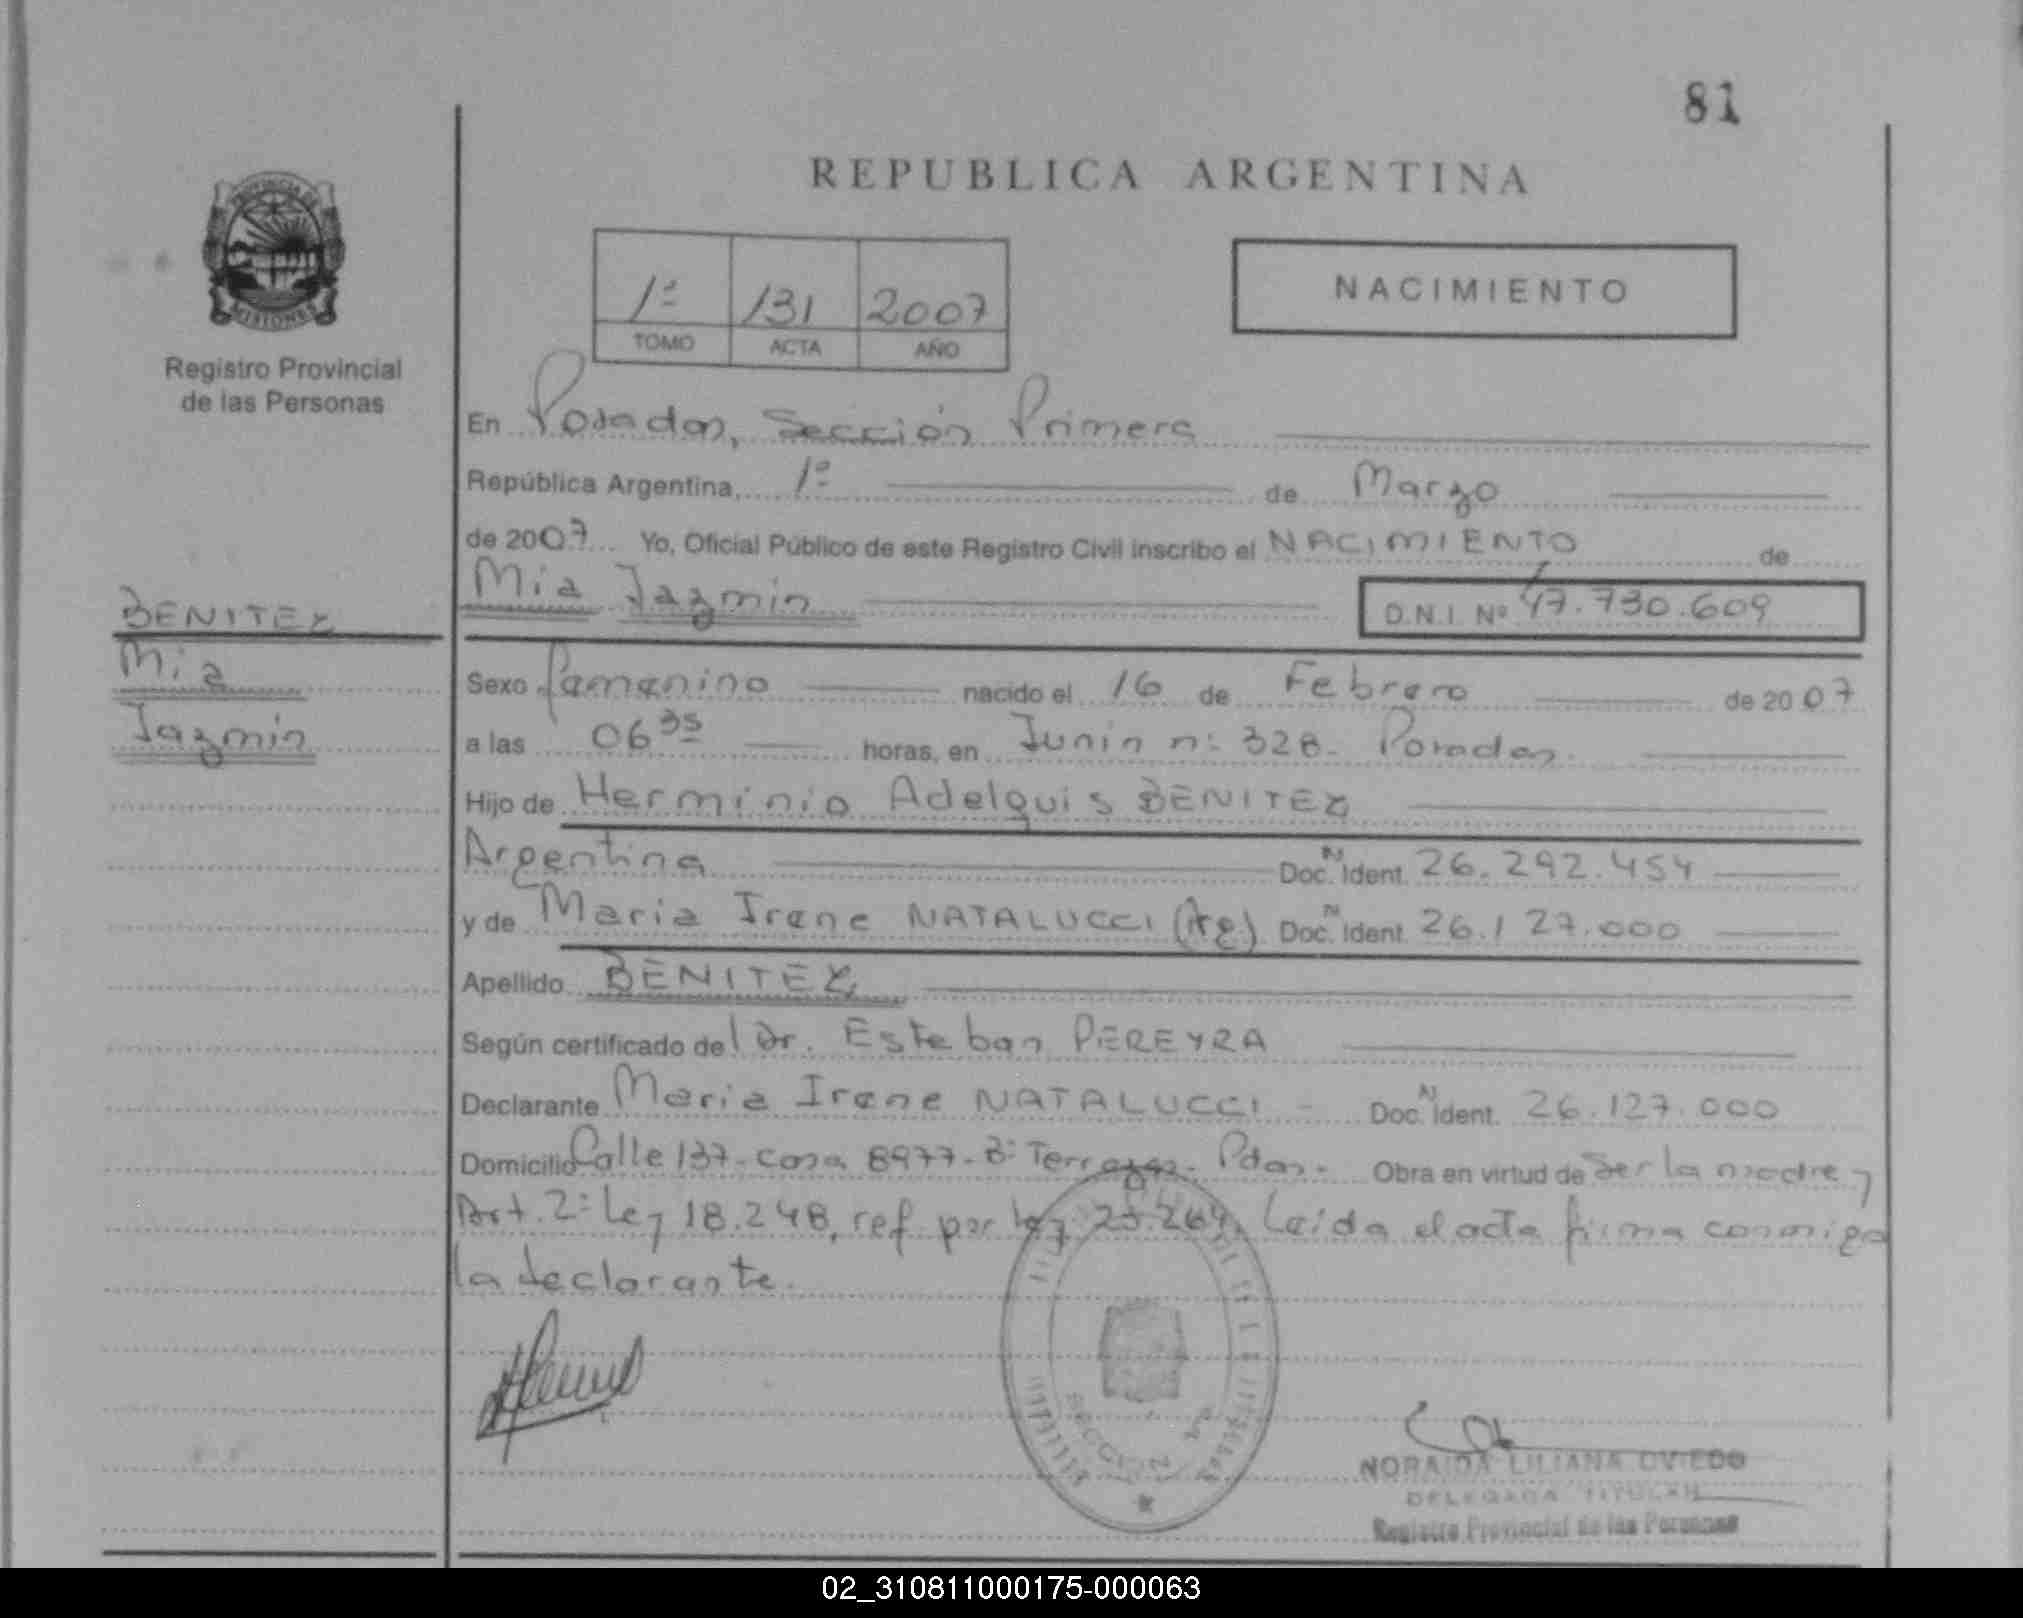 81
REPUBLICA ARGENTINA
PROVINCIA DE
MISIONES
Registro Provincial
de las Personas
1º 131 2007
TOMO ACTA AÑO
NACIMIENTO
En Posadas, Sección Primera
República Argentina, 1º de Marzo
de 2007 Yo, Oficial Público de este Registro Civil inscribo el NACIMIENTO de
Mia Jazmin D.N.I. Nº 47.730.609
BENITEZ
Mia
Jazmin
Sexo Femenino nacido el 16 de Febrero de 2007
a las 06 35 horas, en Junin nº 328. Posadas.
Hijo de Herminio Adelquis BENITEZ
Argentina Doc. N Ident. 26.292.454
y de Maria Irene NATALUCCI (Arg) Doc. N Ident. 26.127.000
Apellido BENITEZ
Según certificado del Dr. Esteban PEREYRA
Declarante Maria Irene NATALUCCI - Doc. N Ident. 26.127.000
Domicilio Calle 137-casa 8977-Bº Terrazas- Pdas.- Obra en virtud de Ser la madre y
Art. 2º Ley 18.248, ref. por ley 23.264, Leida el acta firma conmigo
la declarante.
SECCION
NORAIDA LILIANA OVIEDO
DELEGADA TITULAR
Registro Provincial de las Personas
02_310811000175-000063